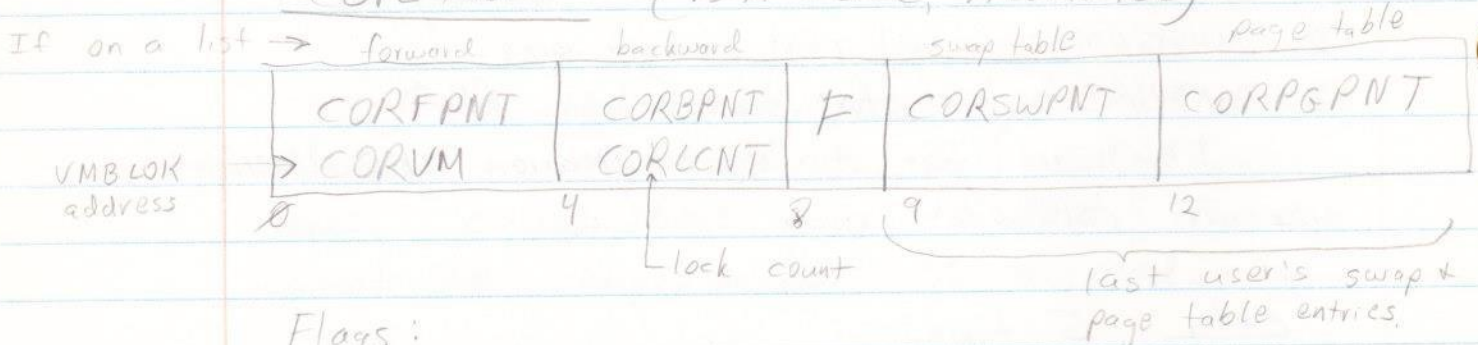 If on a list → forward backward swap table page table
CORFPNT CORBPNT F CORSWPNT CORPGPNT
VMBLOK address → CORVM CORLCNT
0 4 8 9 12
lock count
last user's swap &
page table entries.
Flags: